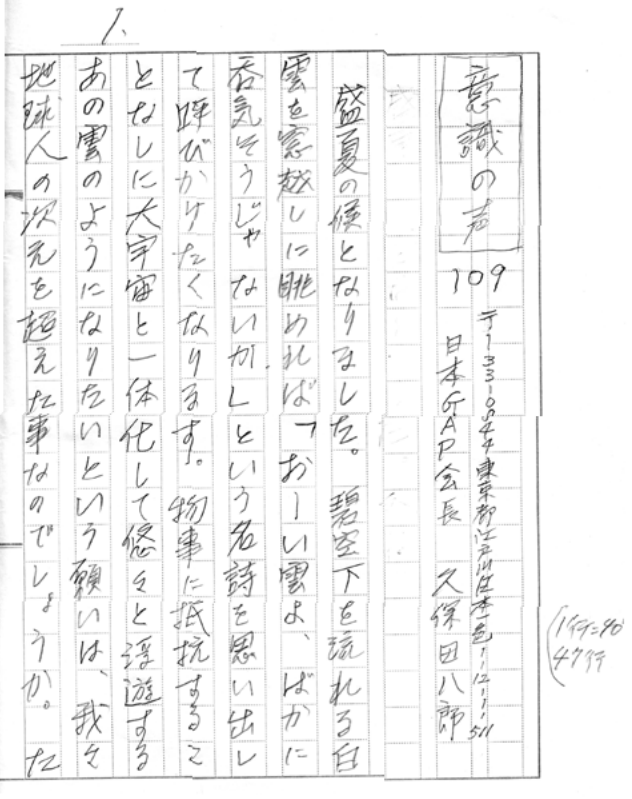 1.
意識の声
109
〒133-0044 東京都江戸川区本一色1-12-1-511
日本GAP会長 久保田八郎
盛夏の候となりました。碧空下を流れる白
雲を窓越しに眺めれば「おーい雲よ、ばかに
呑気そうじゃないか」という名詩を思い出し
て呼びかけたくなります。物事に抵抗するこ
となしに大宇宙と一体化して悠々と浮遊する
あの雲のようになりたいという願いは、我々
地球人の次元を超えた事なのでしょうか。た
(1行=40
47行